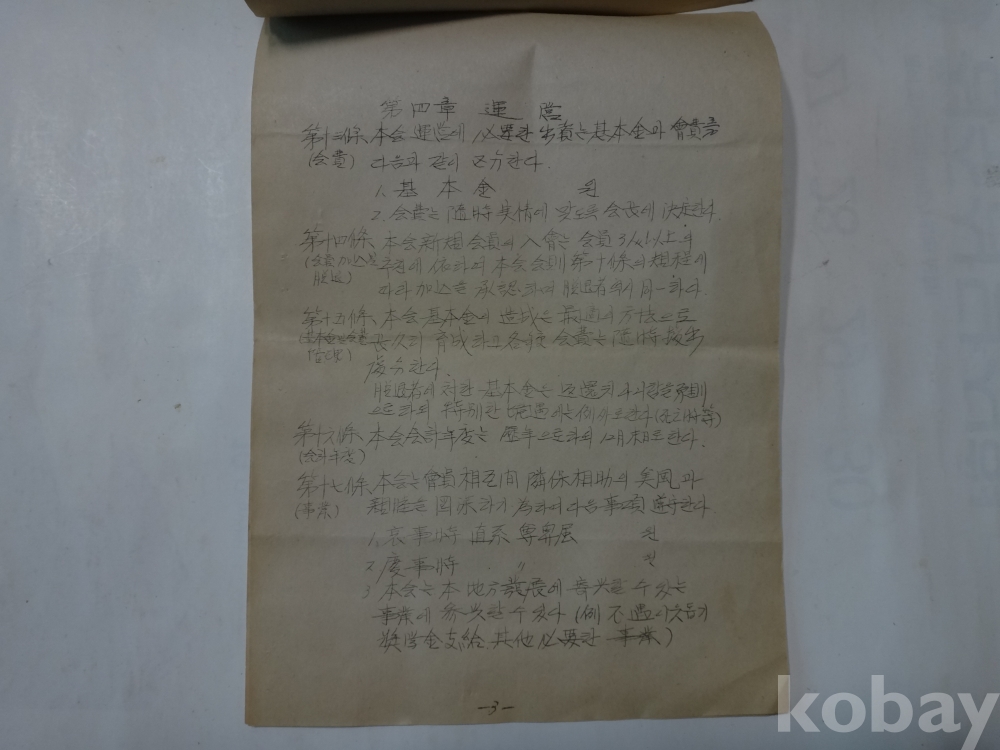 第四章 運営
第十三條 本会 運営에 必要한 出資는 基本金과 會費를
(会費) 다음과 같이 区分한다.
1. 基本金 원
2. 会費는 随時 実情에 맞도록 会長에 決定한다.
第十四條 本会 新規 会員의 入會는 会員 3/4以上의
(会員加入및 依하되 本会 会則 第十條의 規程에
脱退) 따라 加入을 承認하며 脱退者 역시 同一하다.
第十五條 本会 基本金의 造成은 最適의 方法으로
育成하고 会費는 随時 搬出
處分한다.
脱退者에 対한 基本金은 返還치 아니함을 原則
으로하되 特別한 境遇에는 例外로한다
第十六條 本会 会計年度는 歷年으로하되 12月末로 한다.
(会計年度)
第十七條 本会는 會員相互间 隣保相助의 美風과
(事業) 親睦을 圖謀하기 為하여 다음 事項 遵守한다.
1. 哀事時 直系 尊卑属 원
2. 慶事時 〃 원
3. 本会는 本 地方 發展에 寄與할 수 있는
事業에 参與할 수 있다 (例 不遇이웃돕기
奬学金支給 其他 必要한 事業)
-3-
kobay